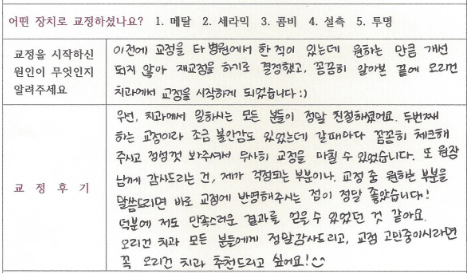 어떤 장치로 교정하셨나요? 1. 메탈 2. 세라믹 3. 콤비 4. 설측 5. 투명
교정을 시작하신
원인이 무엇인지
알려주세요
이전에 교정을 타 병원에서 한 적이 있는데 원하는 만큼 개선
되지 않아 재교정을 하기로 결정했고, 꼼꼼히 알아본 끝에 오리건
치과에서 교정을 시작하게 되었습니다 :)
교 정 후 기
우선, 치과에서 일하시는 모든 분들이 정말 친절하셨어요. 두번째
하는 교정이라 조금 불안감도 있었는데 갈때마다 꼼꼼히 체크해
주시고 정성껏 봐주셔서 무사히 교정을 마칠 수 있었습니다. 또 원장
님께 감사드리는 건, 제가 걱정되는 부분이나, 교정 중 원하는 부분을
말씀드리면 바로 교정에 반영해주시는 점이 정말 좋았습니다!
덕분에 저도 만족스러운 결과를 얻을 수 있었던 것 같아요.
오리건 치과 모든 분들에게 정말 감사드리고, 교정 고민중이시라면
꼭 오리건 치과 추천드리고 싶어요!